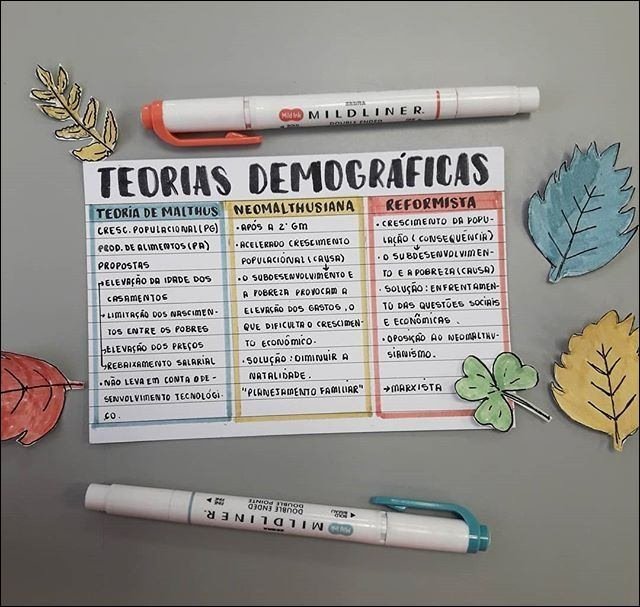 ZEBRA
Mild Ink MILDLINER.
DOUBLE ENDED
TEORIAS DEMOGRÁFICAS
TEORIA DE MALTHUS
CRESC. POPULACIONAL (PG)
PROD. DE ALIMENTOS (PA)
PROPOSTAS
→ELEVAÇÃO DA IDADE DOS
CASAMENTOS
→LIMITAÇÃO DOS NASCIMEN-
TOS ENTRE OS POBRES
→ELEVAÇÃO DOS PREÇOS
REBAIXAMENTO SALARIAL
•NÃO LEVA EM CONTA O DE-
SENVOLVIMENTO TECNOLÓGI-
CO.
NEOMALTHUSIANA
•APÓS A 2ª GM
•ACELERADO CRESCIMENTO
POPULACIONAL (CAUSA)
•O SUBDESENVOLVIMENTO E
A POBREZA PROVOCAM A
ELEVAÇÃO DOS GASTOS, O
QUE DIFICULTA O CRESCIMEN-
TO ECONÔMICO.
•SOLUÇÃO: DIMINUIR A
NATALIDADE.
"PLANEJAMENTO FAMILIAR"
REFORMISTA
•CRESCIMENTO DA POPU-
LAÇÃO (CONSEQUÊNCIA)
•O SUBDESENVOLVIMEN-
TO E A POBREZA (CAUSA)
•SOLUÇÃO: ENFRENTAMEN-
TO DAS QUESTÕES SOCIAIS
E ECONÔMICAS.
•OPOSIÇÃO AO NEOMALTHU-
SIANISMO.
→MARXISTA
Mild Ink MILDLINER
DOUBLE ENDED
DOUBLE POINTE